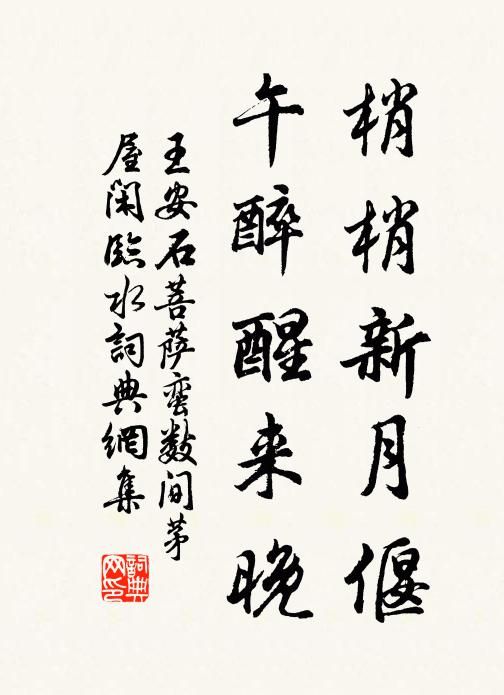 梢梢新月偃
午醉醒来晚
王安石菩萨蛮数间茅
屋闲临水詞典網集
詞典网印